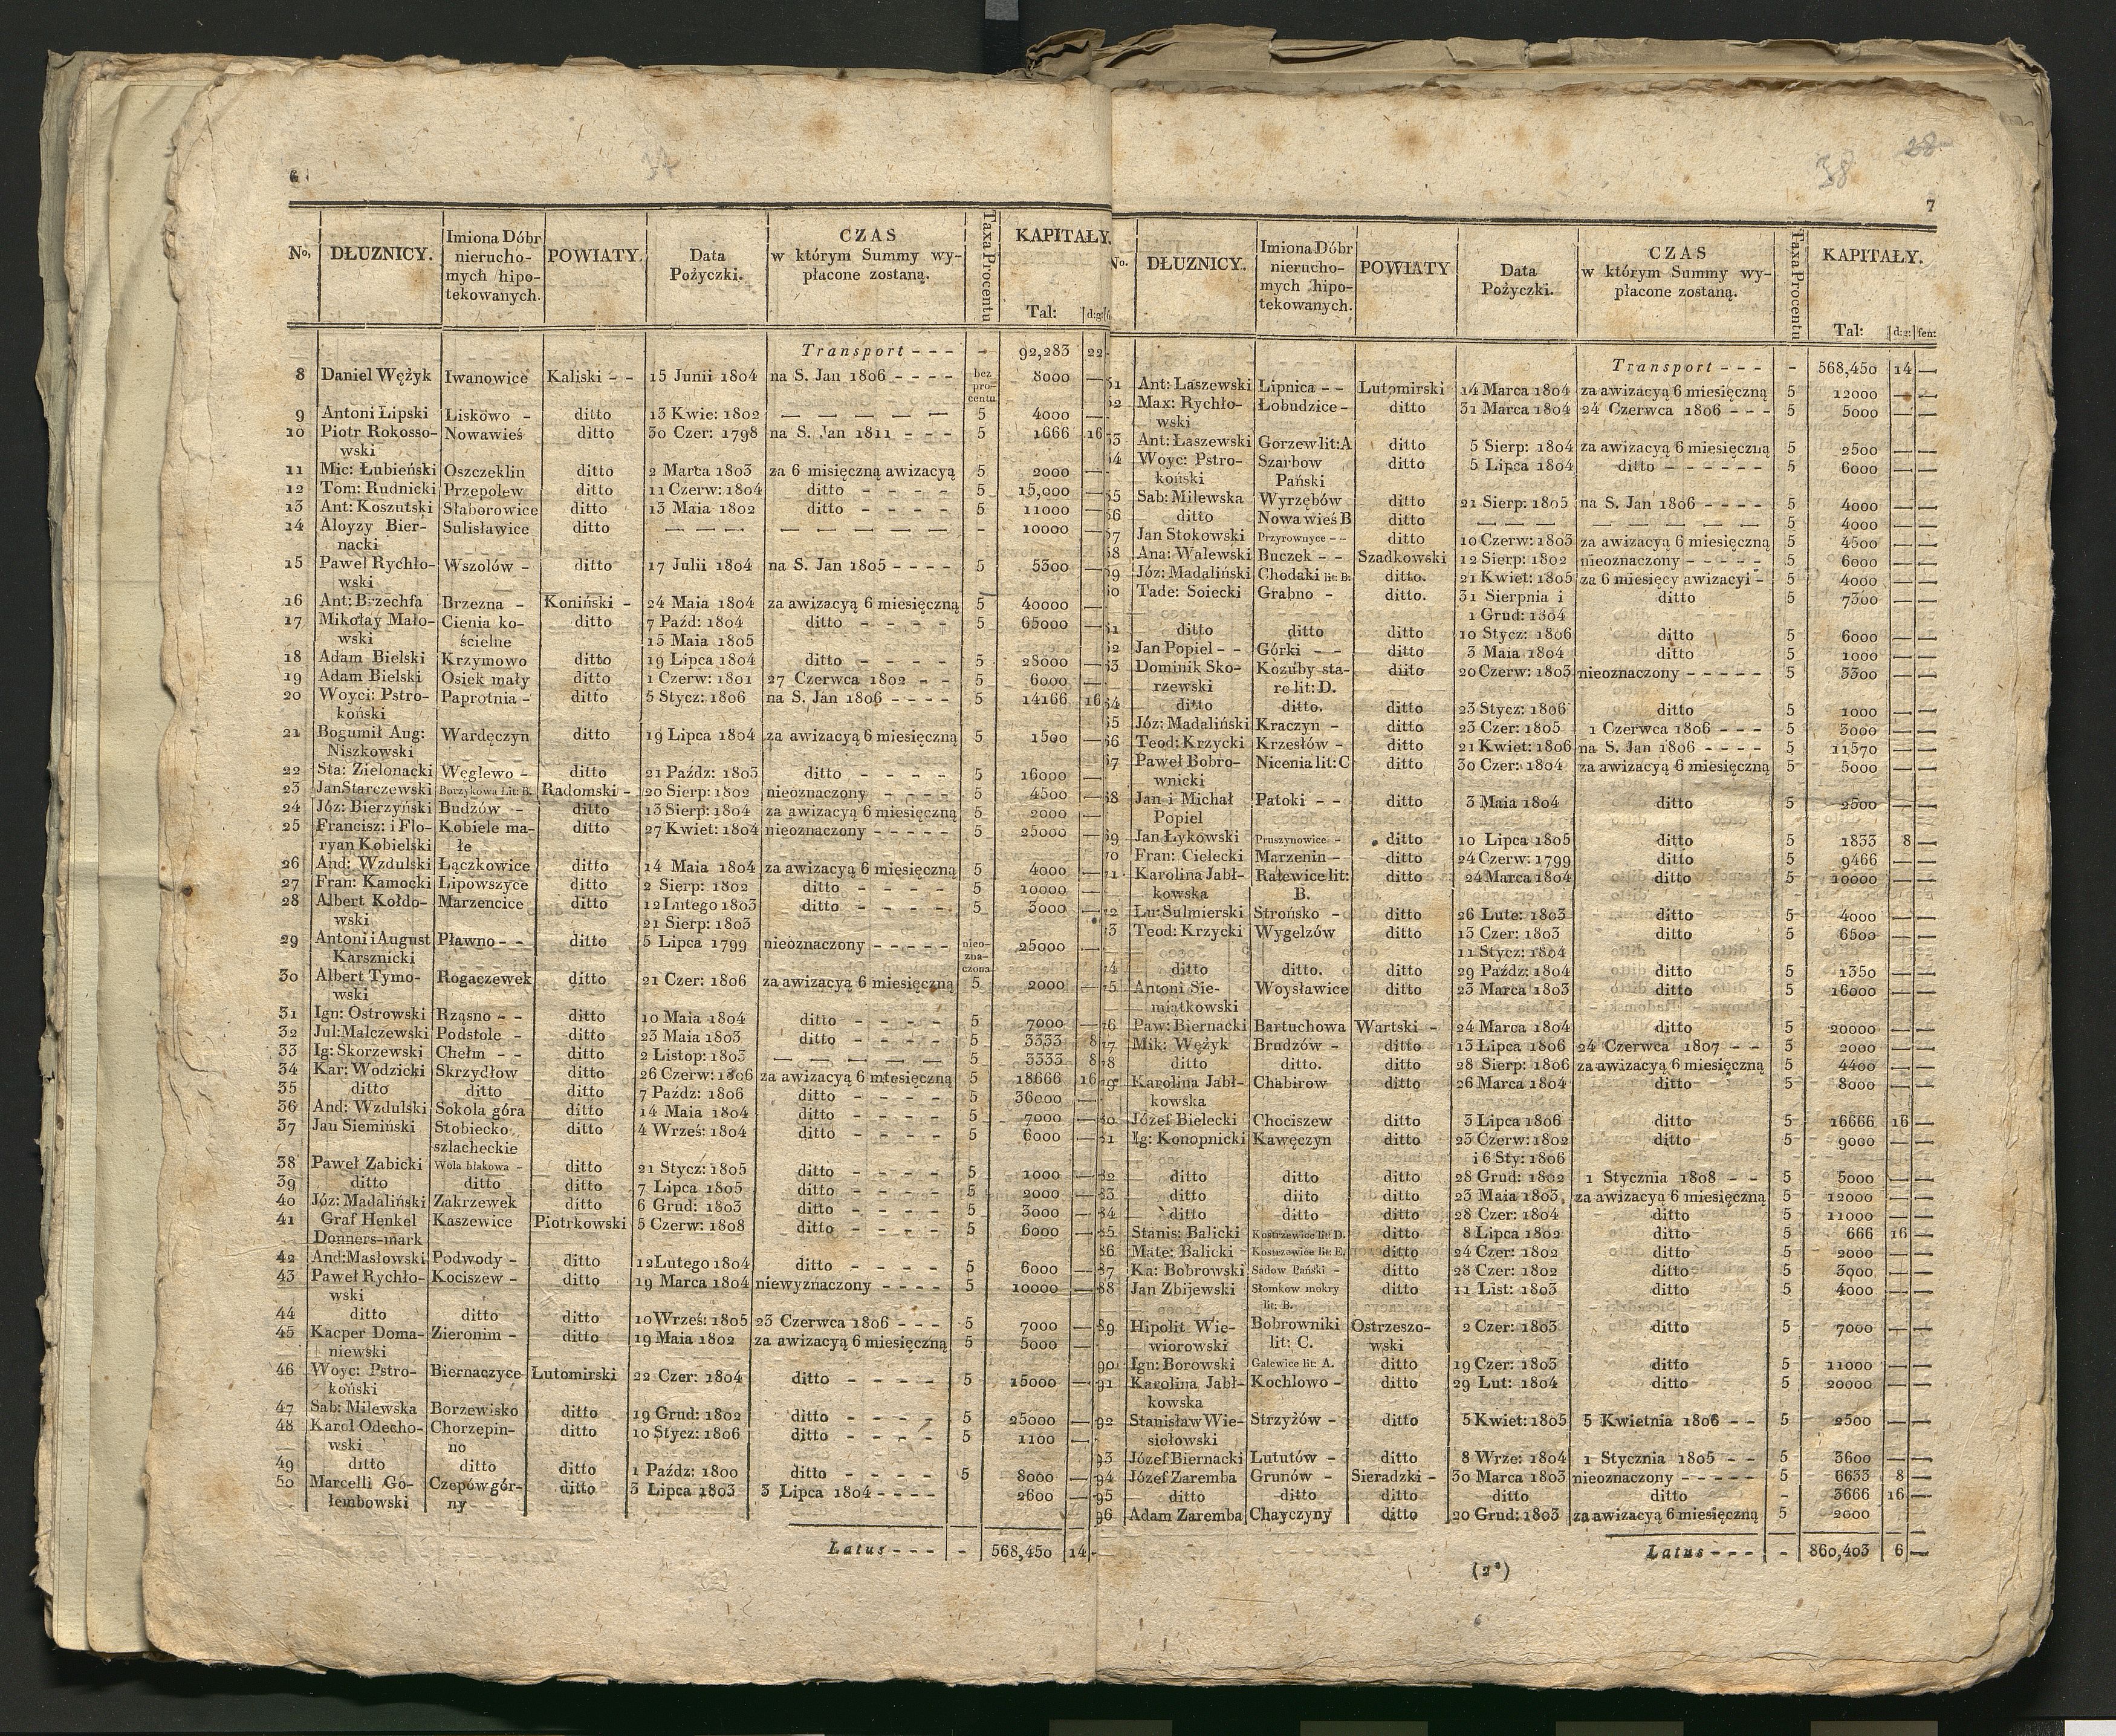 6
No. DŁUZNICY. Imiona Dóbr nierucho-mych hipo-tekowanych. POWIATY. Data Pożyczki. CZAS w którym Summy wy-płacone zostaną. Taxa Procentu KAPITAŁY.
Tal: d:g:
Transport - - - - 92,283 22
8 Daniel Wężyk Iwanowice Kaliski - - 15 Junii 1804 na S. Jan 1806 - - - - bez pro-centu 8000 —
9 Antoni Lipski Liskowo - ditto 13 Kwie: 1802 — — — — — 5 4000 —
10 Piotr Rokosso- Nowawieś ditto 30 Czer: 1798 na S. Jan 1811 - - - 5 1666 16
wski
11 Mic: Łubieński Oszczeklin ditto 2 Marca 1803 za 6 misięczną awizacyą 5 2000 —
12 Tom: Rudnicki Przepolew ditto 11 Czerw: 1804 ditto - - - - 5 15,000 —
13 Ant: Koszutski Słaborowice ditto 13 Maia 1802 ditto - - - - 5 11000 —
14 Aloyzy Bier- Sulisławice ditto — — — — — — — — - 10000 —
nacki
15 Paweł Rychło- Wszolów - ditto 17 Julii 1804 na S. Jan 1805 - - - - 5 5300 —
wski
16 Ant: Brzechfa Brzezna - Koniński - 24 Maia 1804 za awizacyą 6 miesięczną 5 40000 —
17 Mikołay Mało- Cienia ko- ditto 7 Paźd: 1804 ditto - - - - 5 65000 —
wski ścielne 15 Maia 1805
18 Adam Bielski Krzymowo ditto 19 Lipca 1804 ditto - - - - 5 28000 —
19 Adam Bielski Osiek mały ditto 1 Czerw: 1801 27 Czerwca 1802 - - 5 6000 —
20 Woyci: Pstro- Paprotnia - ditto 5 Stycz: 1806 na S. Jan 1806 - - - - 5 14166 16
koński
21 Bogumił Aug: Wardęczyn ditto 19 Lipca 1804 za awizacyą 6 miesięczną 5 1500 —
Niszkowski
22 Sta: Zielonacki Węglewo - ditto 21 Paźdz: 1803 ditto - - - - 5 16000 —
23 Jan Starczewski Borzykowa Lit: B. Radomski - 20 Sierp: 1802 nieoznaczony - - - - 5 4500 —
24 Józ: Bierzyński Budzów - ditto 13 Sierp: 1804 za awizacyą 6 miesięczną 5 2000 —
25 Francisz: i Flo- Kobiele ma- ditto 27 Kwiet: 1804 nieoznaczony - - - - - 5 25000 —
ryan Kobielski łe
26 And: Wzdulski Łączkowice ditto 14 Maia 1804 za awizacyą 6 miesięczną 5 4000 —
27 Fran: Kamocki Lipowszyce ditto 2 Sierp: 1802 ditto - - - - 5 10000 —
28 Albert Kołdo- Marzencice ditto 12 Lutego 1803 ditto - - - - 5 3000 —
wski 21 Sierp: 1803
29 Antoni i August Pławno - - ditto 5 Lipca 1799 nieoznaczony - - - - - nieo-zna-czona 25000 —
Karsznicki
30 Albert Tymo- Rogaczewek ditto 21 Czer: 1806 za awizacyą 6 miesięczną 5 2000 —
wski
31 Ign: Ostrowski Rząsno - - ditto 10 Maia 1804 ditto - - - - 5 7000 —
32 Jul: Malczewski Podstole - ditto 23 Maia 1803 ditto - - - - 5 3333 8
33 Ig: Skorzewski Chełm - - ditto 2 Listop: 1803 — — — — — 5 3333 8
34 Kar: Wodzicki Skrzydłow ditto 26 Czerw: 1806 za awizacyą 6 miesięczną 5 18666 16
35 ditto ditto ditto 7 Paźdz: 1806 ditto - - - - 5 36000 —
36 And: Wzdulski Sokola góra ditto 14 Maia 1804 ditto - - - - 5 7000 —
37 Jan Siemiński Stobiecko ditto 4 Wrześ: 1804 ditto - - - - 5 6000 —
szlacheckie
38 Paweł Zabicki Wola błakowa - ditto 21 Stycz: 1805 ditto - - - - 5 1000 —
39 ditto ditto ditto 7 Lipca 1805 ditto - - - - 5 2000 —
40 Józ: Madaliński Zakrzewek ditto 6 Grud: 1803 ditto - - - - 5 3000 —
41 Graf Henkel Kaszewice Piotrkowski 5 Czerw: 1808 ditto - - - - 5 6000 —
Donners-mark
42 And: Masłowski Podwody - ditto 12 Lutego 1804 ditto - - - - 5 6000 —
43 Paweł Rychło- Kociszew - ditto 19 Marca 1804 niewyznaczony - - - - 5 10000 —
wski
44 ditto ditto ditto 10 Wrześ: 1805 23 Czerwca 1806 - - - 5 7000 —
45 Kacper Doma- Zieronim - ditto 19 Maia 1802 za awizacyą 6 miesięczną 5 5000 —
niewski
46 Woyc: Pstro- Biernaczyce Lutomirski 22 Czer: 1804 ditto - - - - 5 15000 —
koński
47 Sab: Milewska Borzewisko ditto 19 Grud: 1802 ditto - - - - 5 25000 —
48 Karol Odecho- Chorzepin- ditto 10 Stycz: 1806 ditto - - - - 5 1100 —
wski no
49 ditto ditto ditto 1 Paźdz: 1800 ditto - - - - 5 8000 —
50 Marcelli Go- Czepów gór- ditto 3 Lipca 1803 3 Lipca 1804 - - - - 2600 —
łembowski ny
Latus - - - - 568,450 14
38 28
7
No. DŁUZNICY. Imiona Dóbr nierucho-mych hipo-tekowanych. POWIATY Data Pożyczki. CZAS w którym Summy wy-płacone zostaną. Taxa Procentu KAPITAŁY.
Tal: d:g: fen:
Transport - - - - 568,450 14 —
51 Ant: Laszewski Lipnica - - Lutomirski 14 Marca 1804 za awizacyą 6 miesięczną 5 12000 — —
52 Max: Rychło- Łobudzice - ditto 31 Marca 1804 24 Czerwca 1806 - - - 5 5000 — —
wski
53 Ant: Łaszewski Gorzew lit: A ditto 5 Sierp: 1804 za awizacyą 6 miesięczną 5 2500 — —
54 Woyc: Pstro- Szarbow ditto 5 Lipca 1804 ditto - - - - - - 5 6000 — —
koński Pański
55 Sab: Milewska Wyrzębów ditto 21 Sierp: 1805 na S. Jan 1806 - - - - 5 4000 — —
56 ditto Nowa wieś B ditto — — — — — — — — 5 4000 — —
57 Jan Stokowski Przyrownyce - - ditto 10 Czerw: 1803 za awizacyą 6 miesięczną 5 4500 — —
58 Ana: Walewski Buczek - - Szadkowski 12 Sierp: 1802 nieoznaczony - - - - - 5 6000 — —
59 Józ: Madaliński Chodaki lit: B. ditto. 21 Kwiet: 1805 za 6 miesięcy awizacyi - 5 4000 — —
60 Tade: Soiecki Grabno - ditto. 31 Sierpnia i ditto 5 7300 — —
1 Grud: 1804
61 ditto ditto ditto 10 Stycz: 1806 ditto 5 6000 — —
62 Jan Popiel - - Górki - - ditto 3 Maia 1804 ditto 5 1000 — —
63 Dominik Sko- Kozuby sta- diito 20 Czerw: 1803 nieoznaczony - - - - - 5 3300 — —
rzewski re lit: D.
64 ditto ditto. ditto 23 Stycz: 1806 ditto 5 1000 — —
65 Józ: Madaliński Kraczyn - ditto 23 Czer: 1805 1 Czerwca 1806 - - - 5 3000 — —
66 Teod: Krzycki Krzesłów - ditto 21 Kwiet: 1806 na S. Jan 1806 - - - - 5 11570 — —
67 Paweł Bobro- Nicenia lit: C ditto 30 Czer: 1804 za awizacyą 6 miesięczną 5 5000 — —
wnicki
68 Jan i Michał Patoki - - ditto 3 Maia 1804 ditto 5 2500 — —
Popiel
69 Jan Łykowski Pruszynowice - ditto 10 Lipca 1805 ditto 5 1833 8 —
70 Fran: Cielecki Marzenin - ditto 24 Czerw: 1799 ditto 5 9466 — —
71 Karolina Jabł- Ralewice lit: ditto 24 Marca 1804 ditto 5 10000 — —
kowska B.
72 Lu: Sulmierski Strońsko - ditto 26 Lute: 1803 ditto 5 4000 — —
73 Teod: Krzycki Wygelzów ditto 13 Czer: 1803 ditto 5 6500 — —
11 Stycz: 1804
74 ditto ditto. ditto 29 Paźdz: 1804 ditto 5 1350 — —
75 Antoni Sie- Woysławice ditto 23 Marca 1803 ditto 5 16000 — —
miątkowski
76 Paw: Biernacki Bartuchowa Wartski - 24 Marca 1804 ditto 5 20000 — —
77 Mik: Wężyk Brudzów - ditto 13 Lipca 1806 24 Czerwca 1807 - - 5 2000 — —
78 ditto ditto. ditto 28 Sierp: 1806 za awizacyą 6 miesięczną 5 4400 — —
79 Karolina Jabł- Chabirow ditto 26 Marca 1804 ditto 5 8000 — —
kowska
80 Józef Bielecki Chociszew ditto 3 Lipca 1806 ditto 5 16666 16 —
81 Ig: Konopnicki Kawęczyn ditto 23 Czerw: 1802 ditto 5 9000 — —
i 6 Sty: 1806
82 ditto ditto ditto 28 Grud: 1802 1 Stycznia 1808 - - 5 5000 — —
83 ditto diito ditto 23 Maia 1803 za awizacyą 6 miesięczną 5 12000 — —
84 ditto ditto ditto 28 Czer: 1804 ditto 5 11000 — —
85 Stanis: Balicki Kostrzewice lit: D. ditto 8 Lipca 1802 ditto 5 666 16 —
86 Mate: Balicki - Kostrzewice lit: E. ditto 24 Czer: 1802 ditto 5 2000 — —
87 Ka: Bobrowski Sadow Pański - ditto 28 Czer: 1802 ditto 5 3000 — —
88 Jan Zbijewski Słomkow mokry ditto 11 List: 1803 ditto 5 4000 — —
lit: B.
89 Hipolit Wie- Bobrowniki Ostrzeszo- 2 Czer: 1803 ditto 5 7000 — —
wiorowski lit: C. wski
90 Ign: Borowski Galewice lit: A. ditto 19 Czer: 1803 ditto 5 11000 — —
91 Karolina Jabł- Kochlowo - ditto 29 Lut: 1804 ditto 5 20000 — —
kowska
92 Stanisław Wie- Strzyżów - ditto 5 Kwiet: 1805 5 Kwietnia 1806 - - 5 2500 — —
siołowski
93 Józef Biernacki Lututów - ditto 8 Wrze: 1804 1 Stycznia 1805 - - 5 3600 — —
94 Józef Zaremba Grunów - Sieradzki - 30 Marca 1803 nieoznaczony - - - - - 5 6633 8 —
95 ditto ditto ditto ditto ditto - 3666 16 —
96 Adam Zaremba Chayczyny ditto 20 Grud: 1803 za awizacyą 6 miesięczną 5 2000 — —
Latus - - - - 860,403 6 —
(2*)